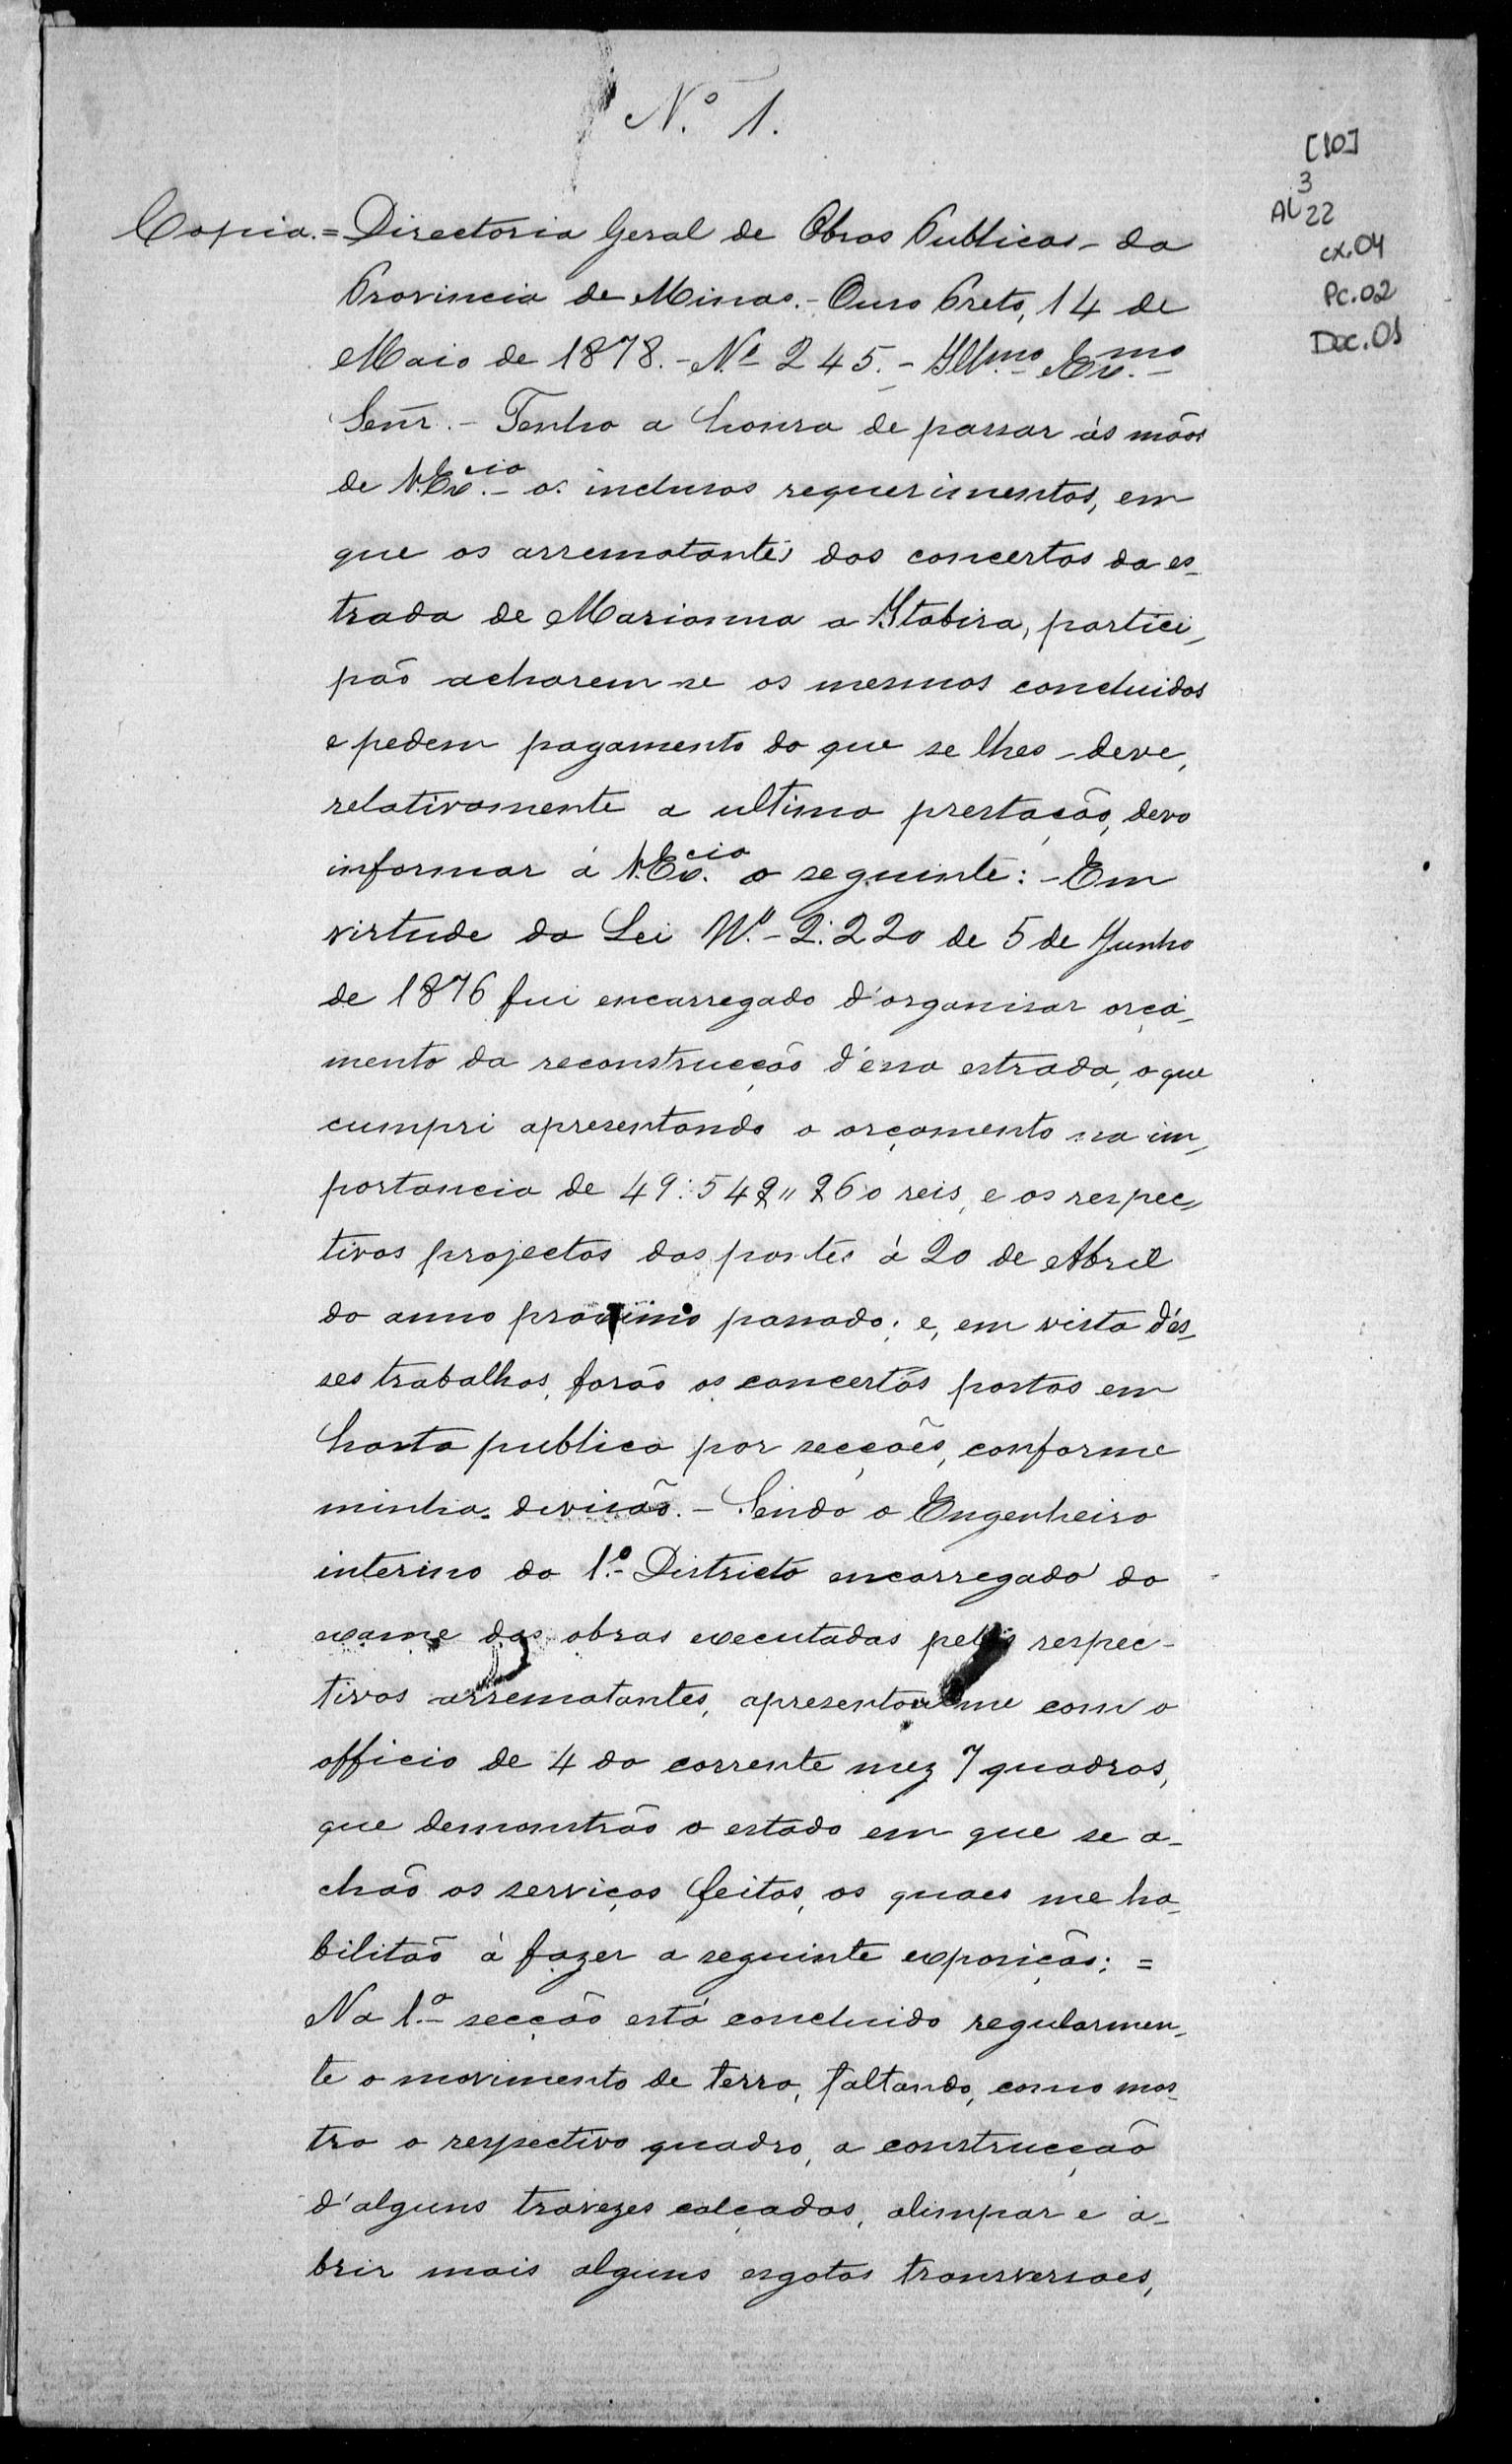 N.º 1.
[10]
3
AL 22
cx.04
Pc.02
Doc.01
Copia.=Directoria Geral de Obras Publicas - da
Provincia de Minas.- Ouro Preto, 14 de
Maio de 1878.- Nº 245.- Illmo. Exmo.
Senr.- Tenho a honra de passar ás mãos
de V.Excia. os inclusos requerimentos, em
que os arrematantes dos concertos da es-
trada de Marianna a Itabira, partici-
pão acharem-se os mesmos concluidos
e pedem pagamento do que se lhes deve,
relativamente a ultima prestação, devo
informar á V.Excia. o seguinte: - Em
virtude da Lei N.º - 2:220 de 5 de Junho
de 1876 fui encarregado d'organisar orça-
mento da reconstrucção d'essa estrada, o que
cumpri apresentando o orçamento na im-
portancia de 49:542"260 reis, e os respec-
tivos projectos das pontes á 20 de Abril
do anno proximo passado; e, em vista d'es-
ses trabalhos, forão os concertos postos em
hasta publica por secções, conforme
minha devisão. - Sendo o Engenheiro
interino do 1.º Districto encarregado do
exame das obras executadas pelos respec-
tivos arrematantes, apresentou-me com o
officio de 4 do corrente mez 7 quadros,
que demonstrão o estado em que se a-
chão os serviços feitos, os quaes me ha-
bilitão á fazer a seguinte exposição: =
Na 1.ª secção está concluido regularmen-
te o movimento de terra, faltando, como mos-
tra o respectivo quadro, a construcção
d'alguns travezes calçados, alimpar e a-
brir mais alguns esgotos transversaes,